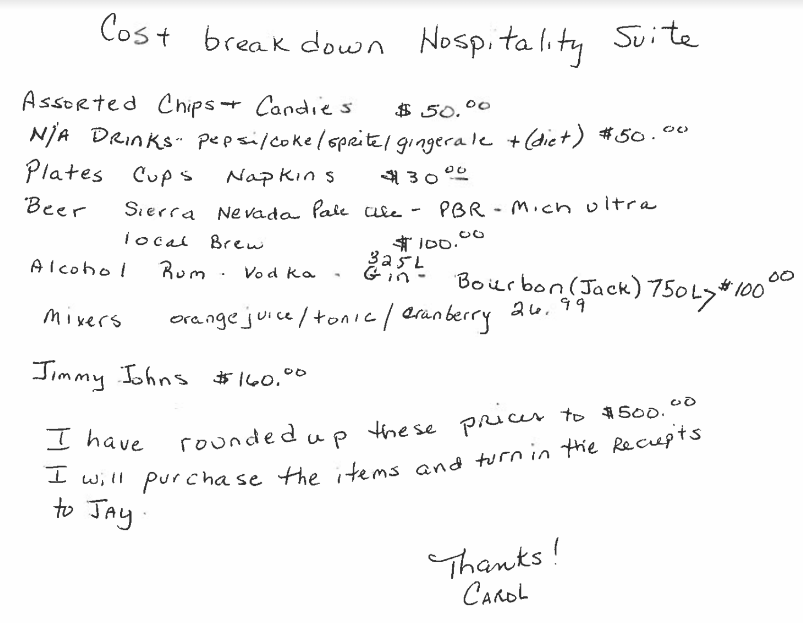 Cost breakdown Hospitality Suite
Assorted Chips + Candies $50.00
N/A Drinks - pepsi/coke/sprite/gingerale + (diet) $50.00
Plates Cups Napkins $30.00
Beer Sierra Nevada Pale ale - PBR - Mich ultra
local Brew $100.00
Alcohol Rum - Vodka - 325L Gin - Bourbon (Jack) 750L > $100.00
Mixers orange juice/tonic/cranberry 26.99
Jimmy Johns $160.00
I have rounded up these prices to $500.00
I will purchase the items and turn in the Reciepts
to Jay.
Thanks!
Carol